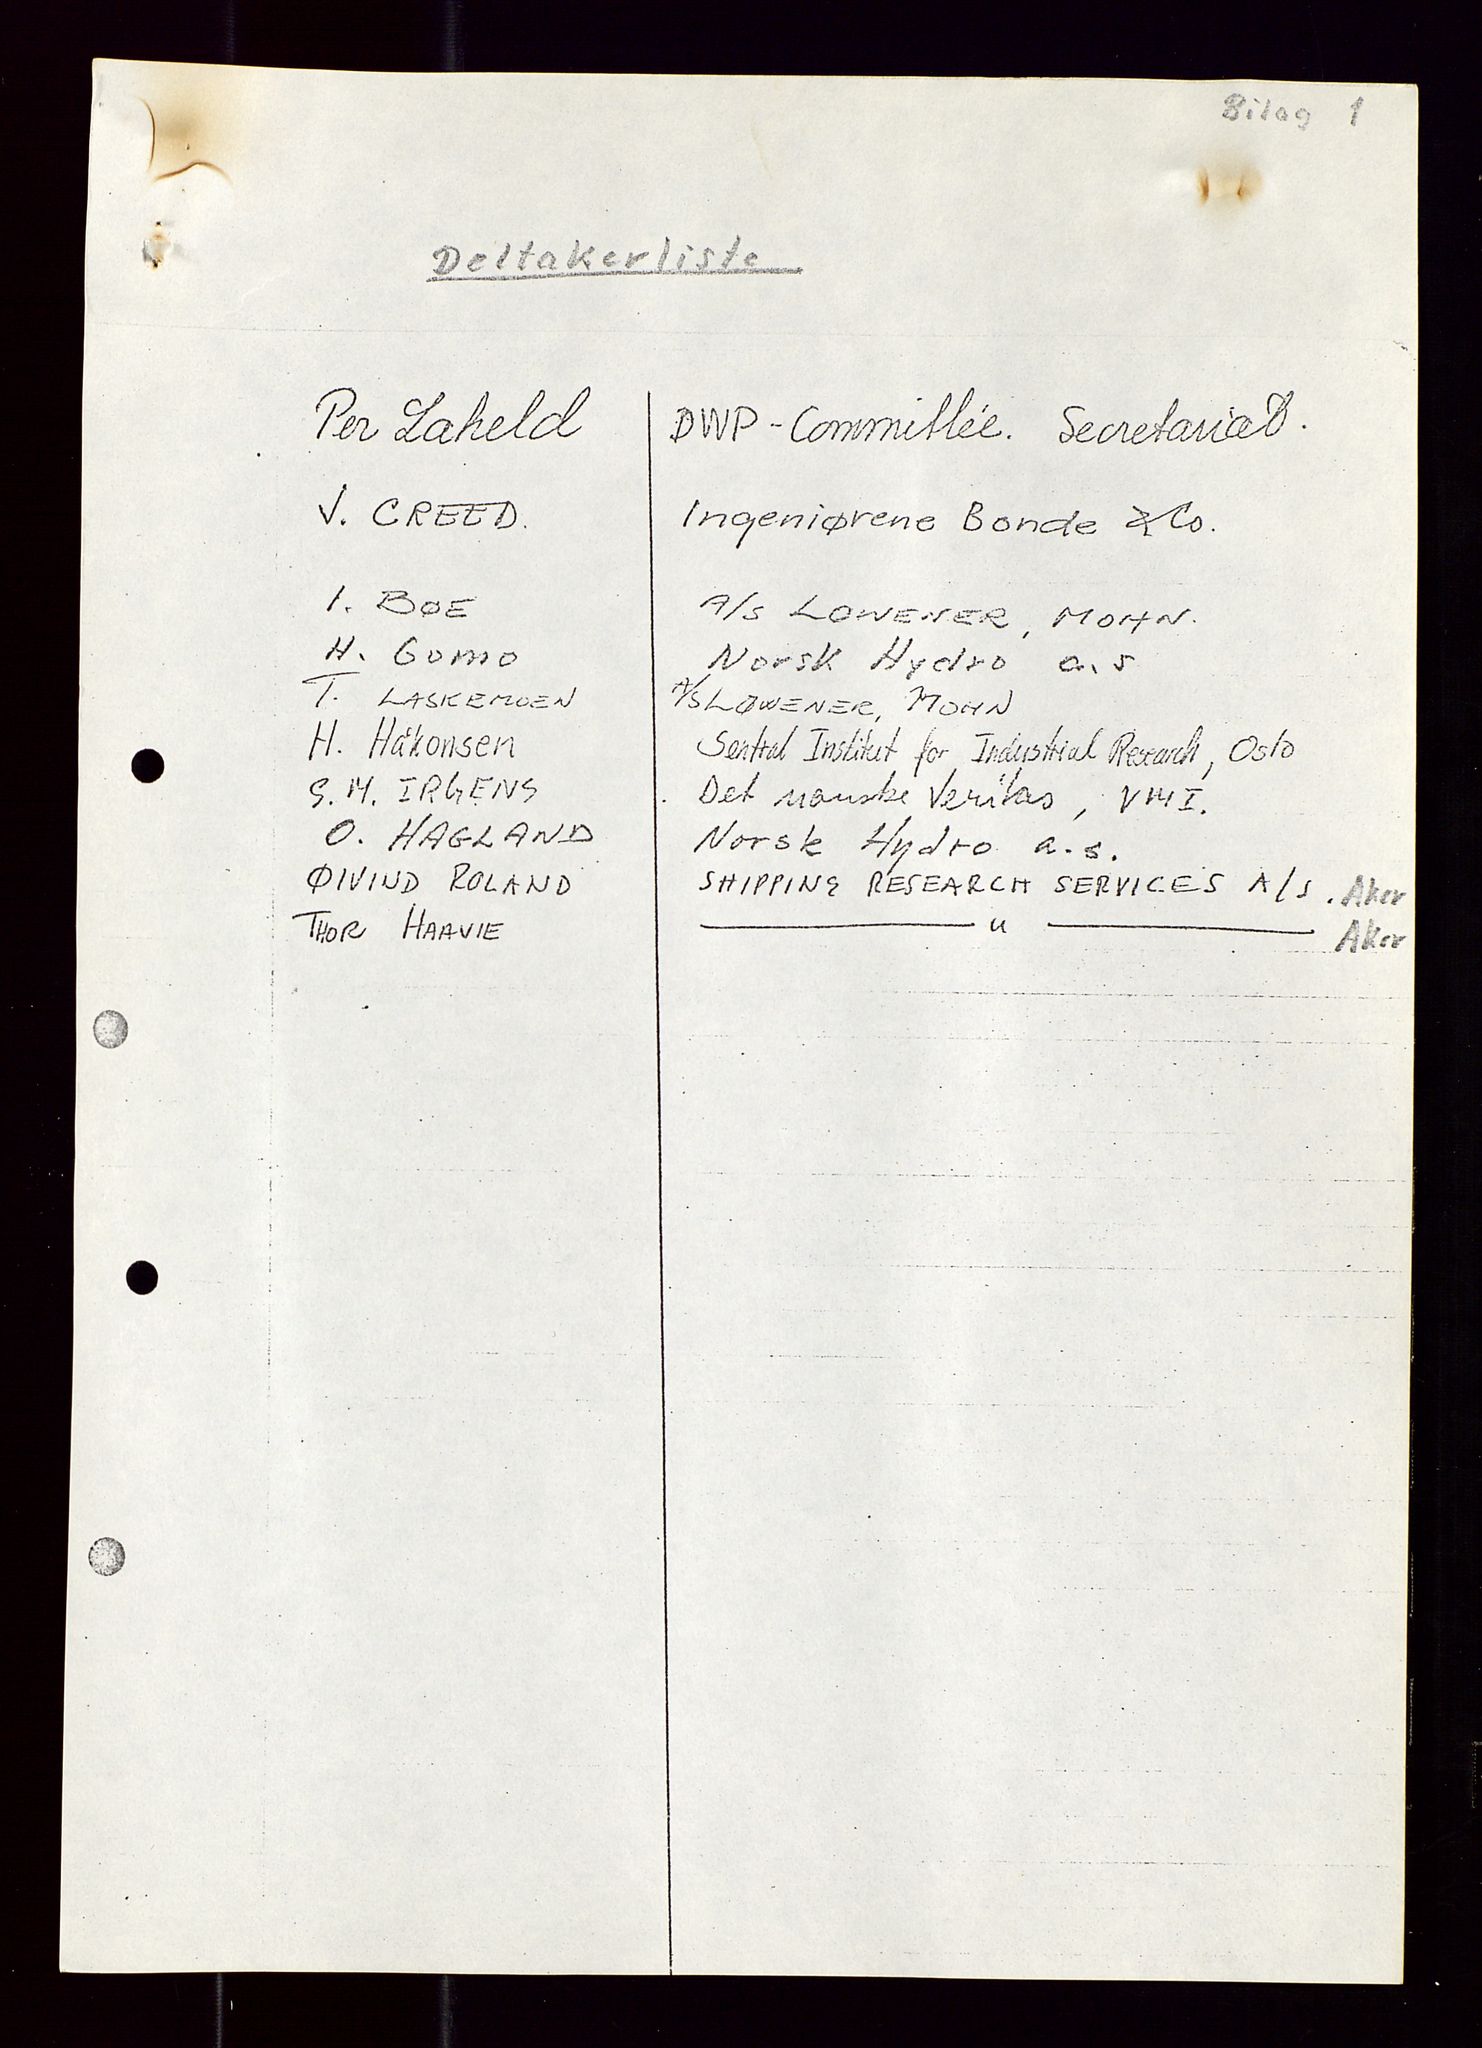 Bilag 1
Deltakerliste
Per Laheld DWP-Committée. Secretariat.
V. CREED. Ingeniørene Bonde & Co.
I. BØE A/S LØWENER, MOHN.
H. Gomo Norsk Hydro a.s
T. LASKEMOEN A/S LØWENER, MOHN
H. Håkonsen Sentral Institut for Industrial Research, Oslo
S.M. IRGENS Det norske Veritas, VMI.
O. HAGLAND Norsk Hydro a.s.
ØIVIND ROLAND SHIPPING RESEARCH SERVICES A/S. Aker
THOR HAAVIE —— " —— Aker